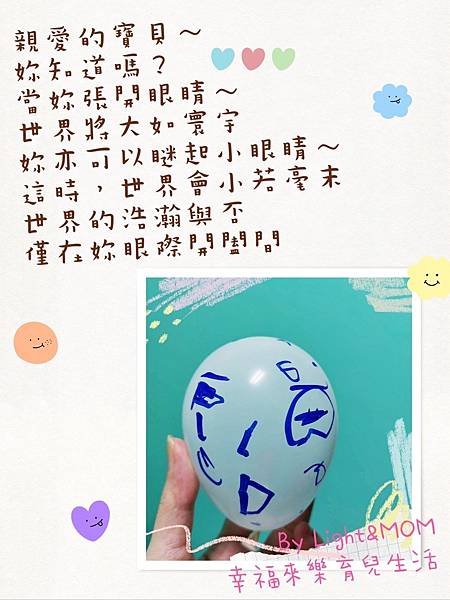 親愛的寶貝～
妳知道嗎？
當妳張開眼睛～
世界將大如寰宇
妳亦可以瞇起小眼睛～
這時，世界會小若毫末
世界的浩瀚與否
僅在妳眼際開闔間
By Light&MOM
幸福來樂育兒生活